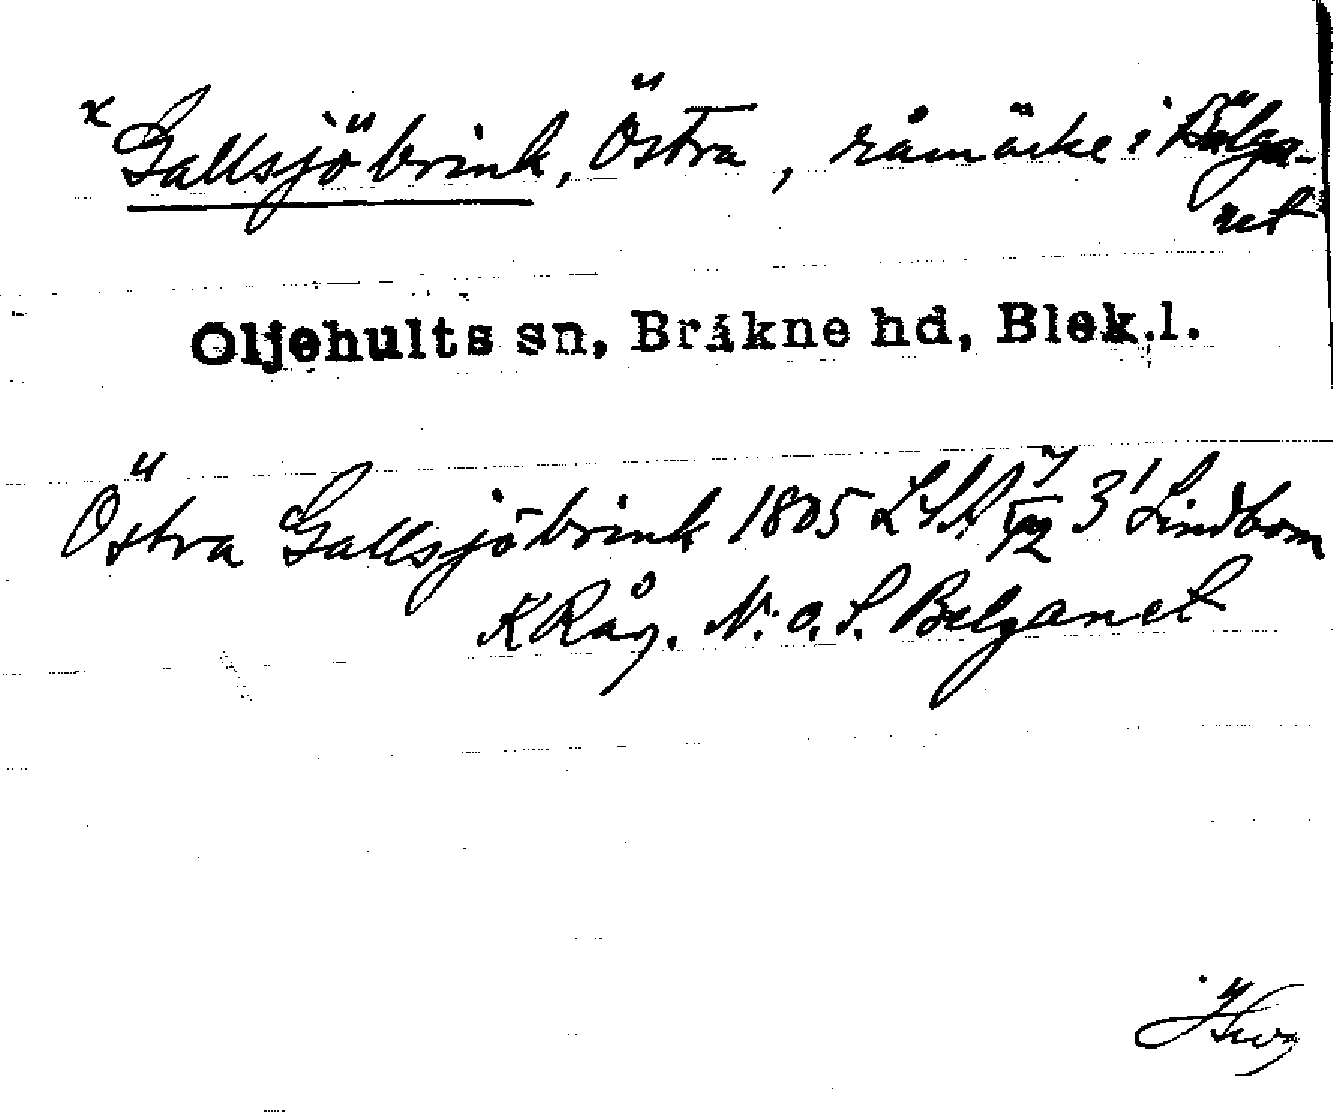 x Gallsjöbrink, Östra, råmärke i Bälga-
net
Öljehults sn, Bräkne hd, Blek.l.
Östra Gallsjöbrink 1805 LSA 3' Lindbom
K Råg. N. o. S. Belganet